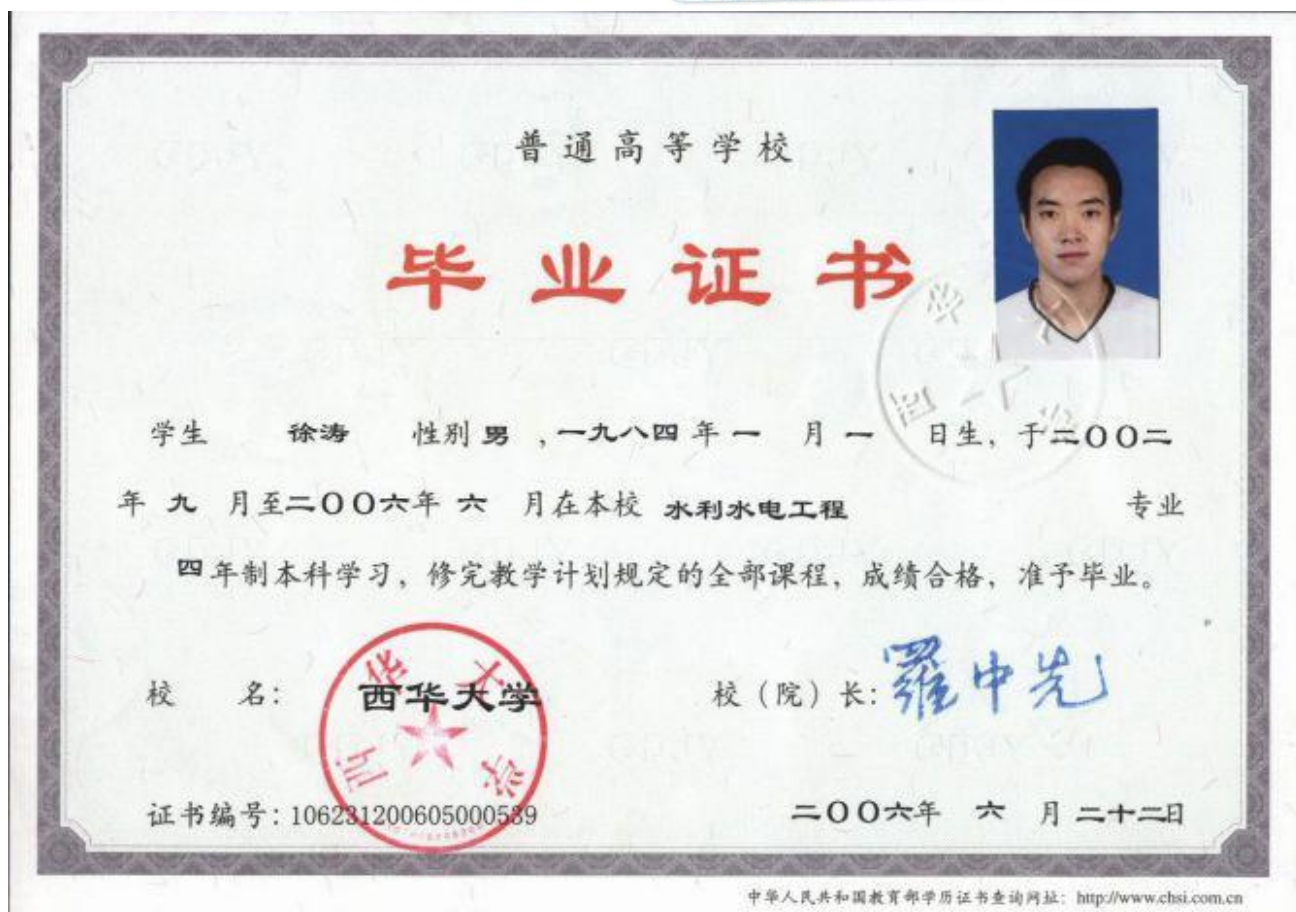 普通高等学校
毕业证书
学生 徐涛 性别 男 ,一九八四 年 一 月 一 日生, 于二〇〇二
年 九 月至二〇〇六年 六 月在本校 水利水电工程 专业
四年制本科学习, 修完教学计划规定的全部课程, 成绩合格, 准予毕业。
校 名: 西华大学 校(院)长: 羅中先
西华大学
证书编号: 106231200605000539 二〇〇六年 六 月 二十二日
中华人民共和国教育部学历证书查询网址: http://www.chsi.com.cn